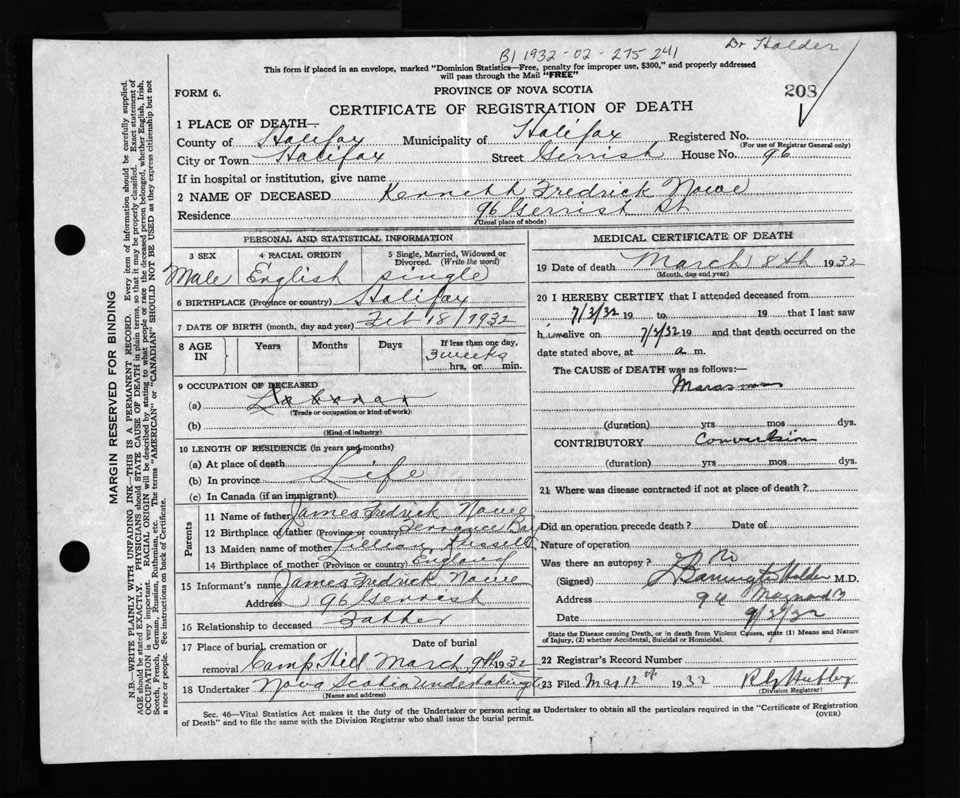 Dr Holder
B1 1932-02-275241
This form if placed in an envelope, marked "Dominion Statistics—Free, penalty for improper use, $300," and properly addressed
will pass through the Mail "FREE"
FORM 6.
PROVINCE OF NOVA SCOTIA
208
CERTIFICATE OF REGISTRATION OF DEATH
1 PLACE OF DEATH—
County of Halifax Municipality of Halifax Registered No.
(For use of Registrar General only)
City or Town Halifax Street Gerrish House No. 96
If in hospital or institution, give name
2 NAME OF DECEASED Kenneth Fredrick Nowe
Residence 96 Gerrish St
(Usual place of abode)
PERSONAL AND STATISTICAL INFORMATION
3 SEX 4 RACIAL ORIGIN 5 Single, Married, Widowed or Divorced. (Write the word)
Male English single
6 BIRTHPLACE (Province or country) Halifax
7 DATE OF BIRTH (month, day and year) Feb 18/1932
8 AGE IN Years Months Days If less than one day,
3 weeks
hrs. or min.
9 OCCUPATION OF DECEASED
(a)
(Trade or occupation or kind of work)
(b)
(Kind of industry)
10 LENGTH OF RESIDENCE (in years and months)
(a) At place of death
(b) In province Life
(c) In Canada (if an immigrant)
Parents
11 Name of father James Fredrick Nowe
12 Birthplace of father (Province or country) Terrance Bay
13 Maiden name of mother Lillian Russell
14 Birthplace of mother (Province or country) England
15 Informant's name James Fredrick Nowe
Address 96 Gerrish
16 Relationship to deceased Father
17 Place of burial, cremation or removal Date of burial
Camp Hill March 9th 1932
18 Undertaker Nova Scotia Undertaking
(Name and address)
MEDICAL CERTIFICATE OF DEATH
19 Date of death March 8th 1932
(Month, day and year)
20 I HEREBY CERTIFY that I attended deceased from
7/3/32 19 to 19 that I last saw
h im alive on 7/3/32 19 and that death occurred on
date stated above, at a m.
The CAUSE of DEATH was as follows:—
Marasmus
(duration) yrs mos dys.
CONTRIBUTORY Convulsion
(duration) yrs mos dys.
21 Where was disease contracted if not at place of death?
Did an operation precede death? Date of
Nature of operation
Was there an autopsy? No
(Signed) Holder M.D.
Address 94 Maynard
Date 9/3/32
State the Disease causing Death, or in death from Violent Causes, state (1) Means and Nature
of Injury, (2) whether Accidental, Suicidal or Homicidal.
22 Registrar's Record Number
23 Filed Mar 12th 1932
(Division Registrar)
Sec. 46—Vital Statistics Act makes it the duty of the Undertaker or person acting as Undertaker to obtain all the particulars required in the "Certificate of Registration
of Death" and to file the same with the Division Registrar who shall issue the burial permit.
(OVER)
MARGIN RESERVED FOR BINDING
N.B.—WRITE PLAINLY WITH UNFADING INK—THIS IS A PERMANENT RECORD. Every item of information should be carefully supplied.
AGE should be stated EXACTLY. PHYSICIANS should STATE CAUSE OF DEATH in plain terms, so that it may be properly classified. Exact statement of
OCCUPATION is very important. RACIAL ORIGIN will be described by stating to what people or race the deceased person belonged, whether English, Irish,
Scotch, French, German, Russian, Ruthenian, etc. The terms "AMERICAN" or "CANADIAN" SHOULD NOT BE USED as they express citizenship but not
a race or people. See instructions on back of Certificate.